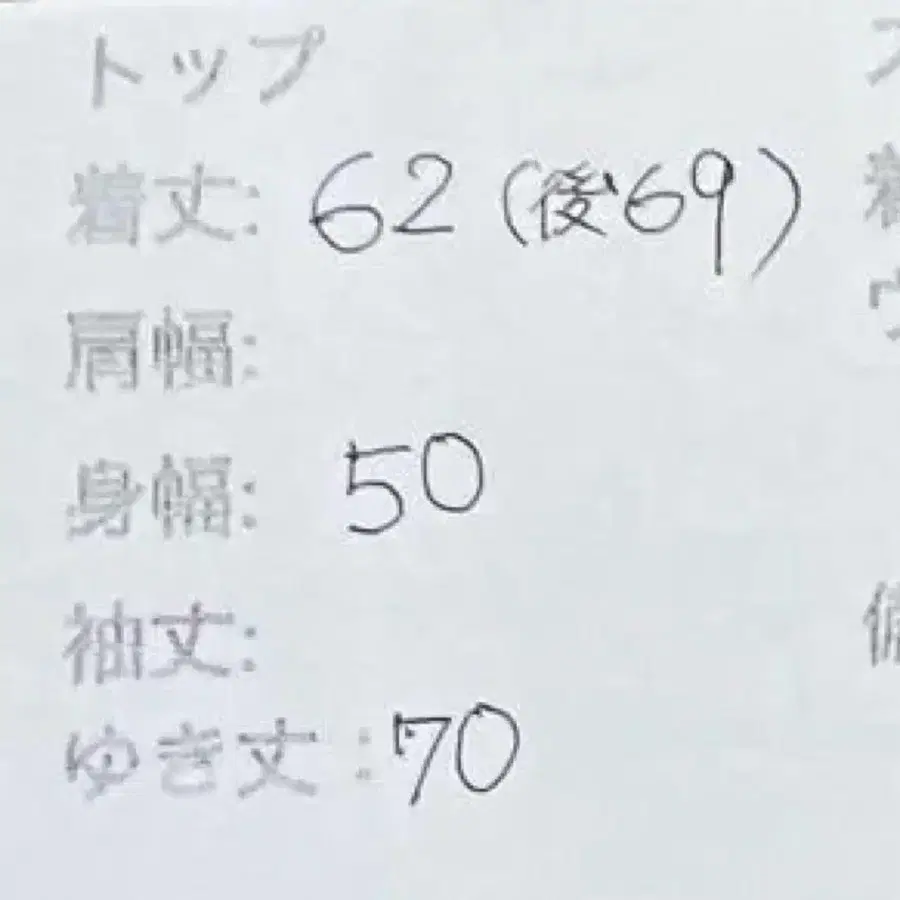 トップ
着丈: 62 (後69)
肩幅:
身幅: 50
袖丈:
ゆき丈:70